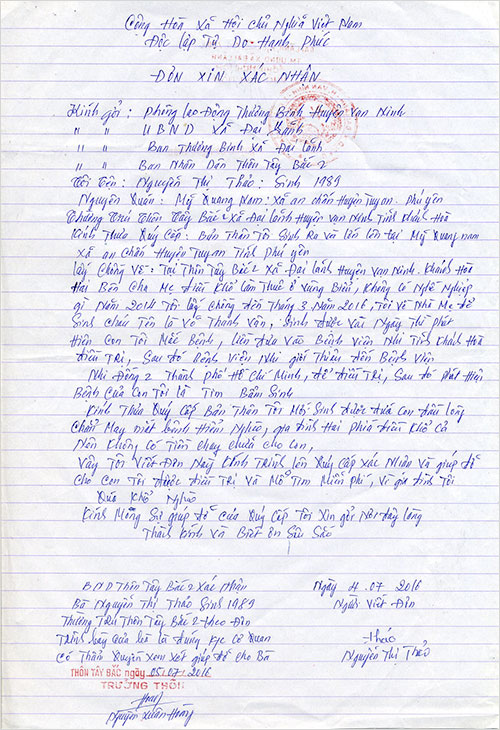 Cộng Hoà Xã Hội Chủ Nghĩa Việt Nam
Độc lập Tự Do Hạnh Phúc
ĐƠN XIN XÁC NHẬN
Kính gởi: Phòng lao Động Thương Binh Huyện Vạn Ninh
" " UBND Xã Đại Lãnh
" " Ban Thương Binh Xã Đại Lãnh
" " Ban Nhân Dân Thôn Tây Bắc 2
Tôi Tên: Nguyễn Thị Thảo: Sinh 1989
Nguyên Quán: Mỹ Quang Nam: xã an chấn Huyện Tuy an. Phú yên
Thường Trú Thôn Tây Bắc 2 Xã Đại Lãnh Huyện Vạn Ninh Tỉnh Khánh Hoà
Kính Thưa Quý Cấp: Bản Thân Tôi Sinh Ra và lớn lên tại Mỹ Quang nam
xã an chấn Huyện Tuy an Tỉnh Phú yên
lấy Chồng Về: Tại Thôn Tây Bắc 2 Xã Đại Lãnh Huyện Vạn Ninh. Khánh Hoà
Hai Bên Cha Mẹ điều Khổ Làm Thuê ở Vùng Biển, Không có Nghề Nghiệp
gì Năm 2014 Tôi lấy Chồng đến Tháng 3 Năm 2016, Tôi về Nhà Mẹ để
Sinh Cháu Tên là Võ Thanh Vân, Sinh được vài Ngày Thì phát
Hiện Con Tôi Mắc Bệnh, liền đưa vào Bệnh Viện Nhi Tỉnh Khánh Hoà
điều Trị, Sau đó Bệnh Viện Nhi giới Thiệu đến Bệnh Viện
Nhi Đồng 2 Thành phố Hồ Chí Minh, để điều Trị, Sau đó phát Hiện
Bệnh Của Con Tôi là Tim Bẩm Sinh
Kính Thưa Quý Cấp Bản Thân Tôi Mới Sinh được đứa Con đầu lòng
Chẳng May Bệnh Hiểm Nghèo, gia đình Hai phía điều Khổ cả
Nên Không Có Tiền Chạy chữa cho Con,
Vậy Tôi Viết Đơn Này Kính Trình lên Quý Cấp Xác Nhận và giúp đỡ
Cho Con Tôi được điều Trị và Mổ Tim Miễn phí, Vì gia đình Tôi
Quá Khổ Nghèo
Kính Mong Sự giúp đỡ của Quý Cấp Tôi Xin gởi Nơi đây lòng
Thành Kính Và Biết ơn Sâu Sắc
BND Thôn Tây Bắc 2 Xác Nhận
Ngày 4.07.2016
Bà Nguyễn Thị Thảo Sinh 1989
Người Viết Đơn
Thường Trú Thôn Tây Bắc 2 Theo đơn
Trình bày của bà là đúng Cơ Quan
Thảo
Có Thẩm Quyền Xem Xét giúp đỡ Cho Bà
Nguyễn Thị Thảo
THÔN TÂY BẮC ngày 05/07/2016
TRƯỞNG THÔN
Nguyễn Xuân Hoàng